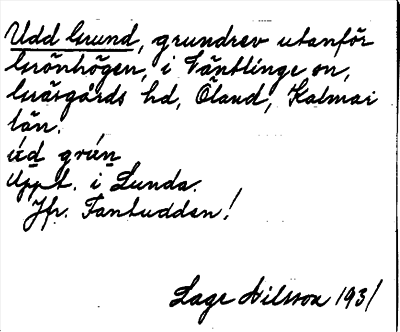 Udd Grund, grundrev utanför
Grönhögen, i Ventlinge sn,
Gräsgårds hd, Öland, Kalmar
län.
ùd grún
Uppt. i Lunda.
Jfr. Tantudden!
Lage Nilsson 1931